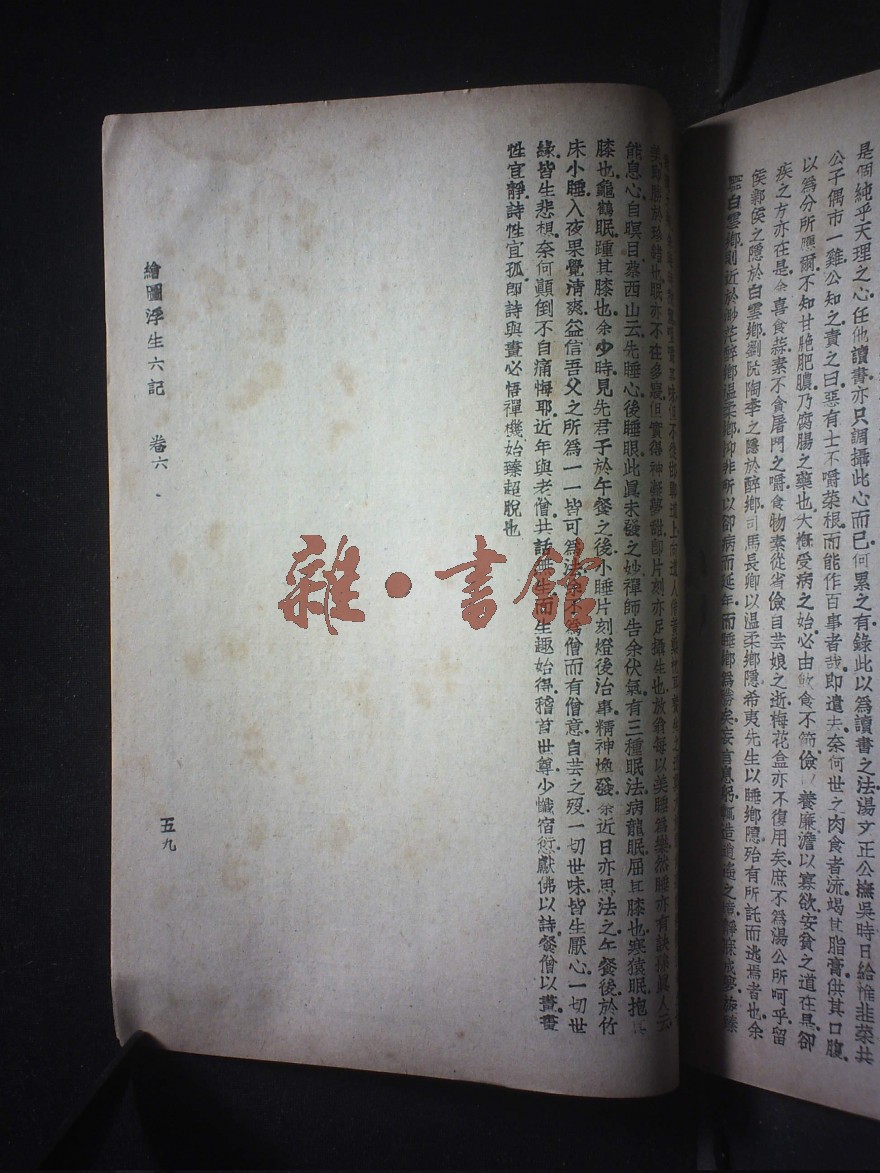 是個純乎天理之心任他讀書亦只調攝此心而已何累之有錄此以爲讀書之法湯文正公撫吳時日給惟韭菜共
公子偶市一雞公知之責之曰惡有士不嚼菜根而能作百事者哉即遣去奈何世之肉食者流竭其脂膏供其口腹
以爲分所應爾不知甘脆肥膿乃腐腸之藥也大槪受病之始必由飮食不節儉以養廉澹以寡欲安貧之道在是卻
疾之方亦在是余喜食蒜素不貪屠門之嚼食物素從省儉自芸娘之逝梅花盒亦不復用矣庶不爲湯公所呵乎留
侯鄴侯之隱於白雲鄉劉阮陶李之隱於醉鄉司馬長卿以温柔鄉隱希夷先生以睡鄉隱殆有所託而逃焉者也余
謂白雲鄉則近於渺茫醉鄉温柔鄉抑非所以卻病而延年而睡鄉爲勝矣妄言息躬輒造逍遙之境
眠亦不在多寢但實得神凝夢甜即片刻亦足攝生也放翁每以美睡爲樂然睡亦有訣孫眞人云
能息心自瞑目蔡西山云先睡心後睡眼此眞未發之妙禪師告余伏氣有三種眠法病龍眠屈其膝也寒猿眠抱其
膝也龜鶴眠踵其膝也余少時見先君子於午餐之後小睡片刻燈後治事精神煥發余近日亦思法之午餐後於竹
床小睡入夜果覺清爽益信吾父之所爲一一皆可爲法余不爲僧而有僧意自芸之歿一切世味皆生厭心一切世
緣皆生悲想奈何顚倒不自痛悔耶近年與老僧共話無生而生趣始得稽首世尊少懺宿愆獻佛以詩餐僧以畫畫
性宜靜詩性宜孤即詩與畫必悟禪機始臻超脫也
繪圖浮生六記 卷六
五九
雜·書館